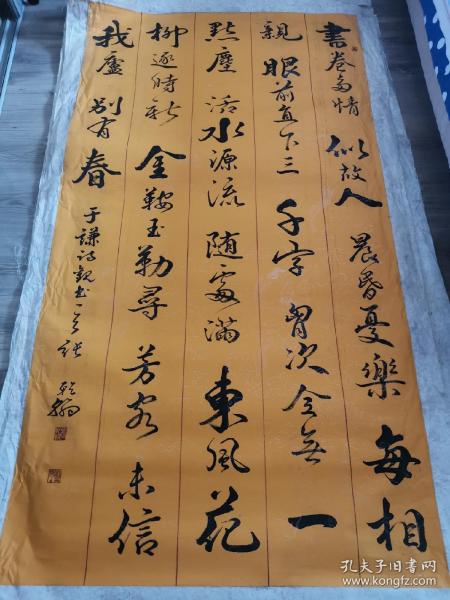 書卷多情似故人晨昏憂樂每相
親眼前直下三千字胷次全無一
點塵活水源流随處滿東風花
柳逐時新金鞍玉勒尋芳客未信
我廬别有春
于謙詩觀書一首
孔夫子旧书网
www.kongfz.com